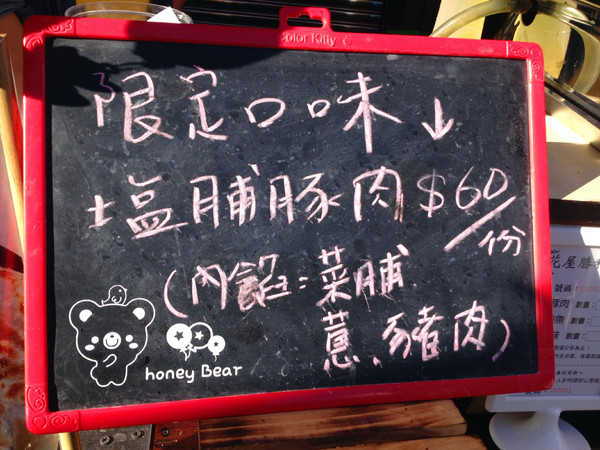 Color Kitty
限定口味↓
塩脯豚肉$60/份
(內餡:菜脯
蔥、豬肉)
honey Bear
花屋勝